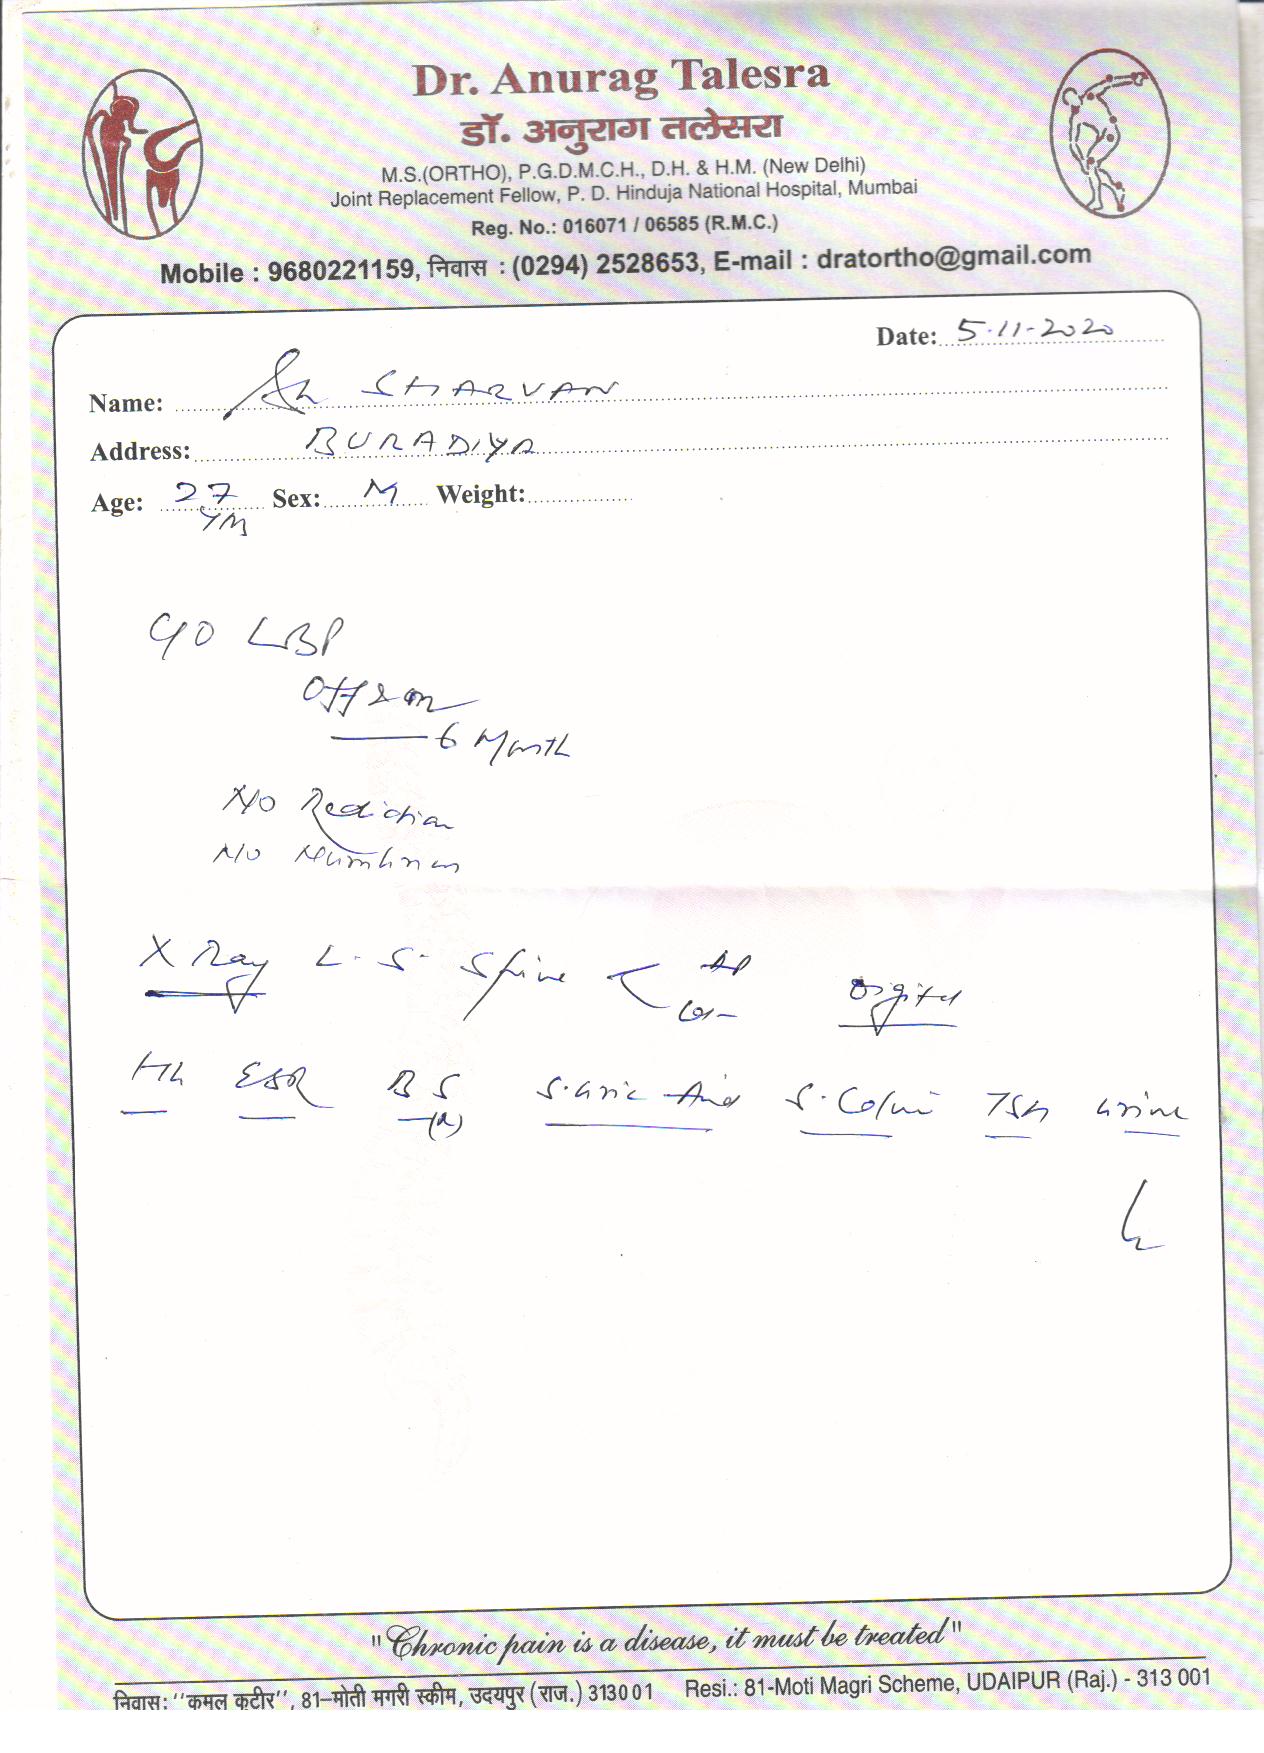 Dr. Anurag Talesra
डॉ. अनुराग तलेसरा
M.S.(ORTHO), P.G.D.M.C.H., D.H. & H.M. (New Delhi)
Joint Replacement Fellow, P. D. Hinduja National Hospital, Mumbai
Reg. No.: 016071 / 06585 (R.M.C.)
Mobile : 9680221159, निवास : (0294) 2528653, E-mail : dratortho@gmail.com
Date: 5.11.2020
Name: Sh SHARVAN
Address: BURADIYA
Age: 27 Sex: M Weight:
C/O LBP
Off & on
6 Month
N/O
N/O Numbness
X Ray L.S. Spine < AP
Digital
Hb ESR BS S.uric Acid TSH urine
(R)
"Chronic pain is a disease, it must be treated"
निवास: ''कमल कुटीर'', 81–मोती मगरी स्कीम, उदयपुर (राज.) 313001 Resi.: 81-Moti Magri Scheme, UDAIPUR (Raj.) - 313 001